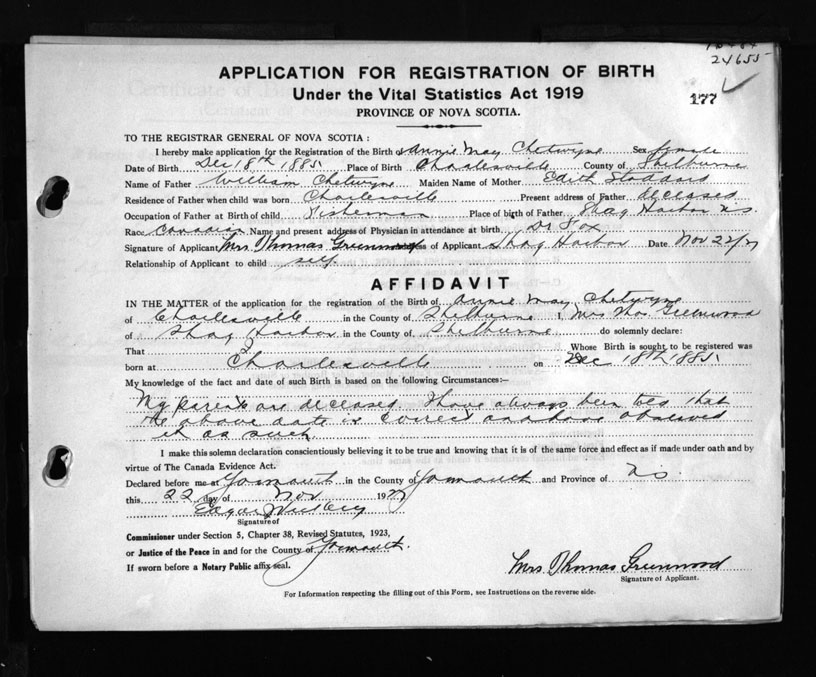 24655
177
APPLICATION FOR REGISTRATION OF BIRTH
Under the Vital Statistics Act 1919
PROVINCE OF NOVA SCOTIA.
TO THE REGISTRAR GENERAL OF NOVA SCOTIA :
I hereby make application for the Registration of the Birth of Annie May Chetwyne Sex female
Date of Birth Dec 18th 1885 Place of Birth Charlesville County of Shelburne
Name of Father William Chetwyne Maiden Name of Mother Edith Stoddard
Residence of Father when child was born Charlesville Present address of Father deceased
Occupation of Father at Birth of child Fisherman Place of birth of Father Shag Harbor N.S.
Race Canadian Name and present address of Physician in attendance at birth Dr Fox
Signature of Applicant Mrs Thomas Greenwood Address of Applicant Shag Harbor Date Nov 22/27
Relationship of Applicant to child self
AFFIDAVIT
IN THE MATTER of the application for the registration of the Birth of Annie May Chetwyne
of Charlesville in the County of Shelburne I, Mrs Thos. Greenwood
of Shag Harbor in the County of Shelburne do solemnly declare:
That Whose Birth is sought to be registered was
born at Charlesville on Dec 18th 1885
My knowledge of the fact and date of such Birth is based on the following Circumstances:—
My parents are deceased I have always been told that
the above date is correct and have observed
it as such
I make this solemn declaration conscientiously believing it to be true and knowing that it is of the same force and effect as if made under oath and by
virtue of The Canada Evidence Act.
Declared before me at Yarmouth in the County of Yarmouth and Province of N.S.
this 22 day of Nov 1927
Edgar
Signature of
Commissioner under Section 5, Chapter 38, Revised Statutes, 1923,
or Justice of the Peace in and for the County of Yarmouth.
If sworn before a Notary Public affix seal.
Mrs Thomas Greenwood
Signature of Applicant.
For Information respecting the filling out of this Form, see Instructions on the reverse side.